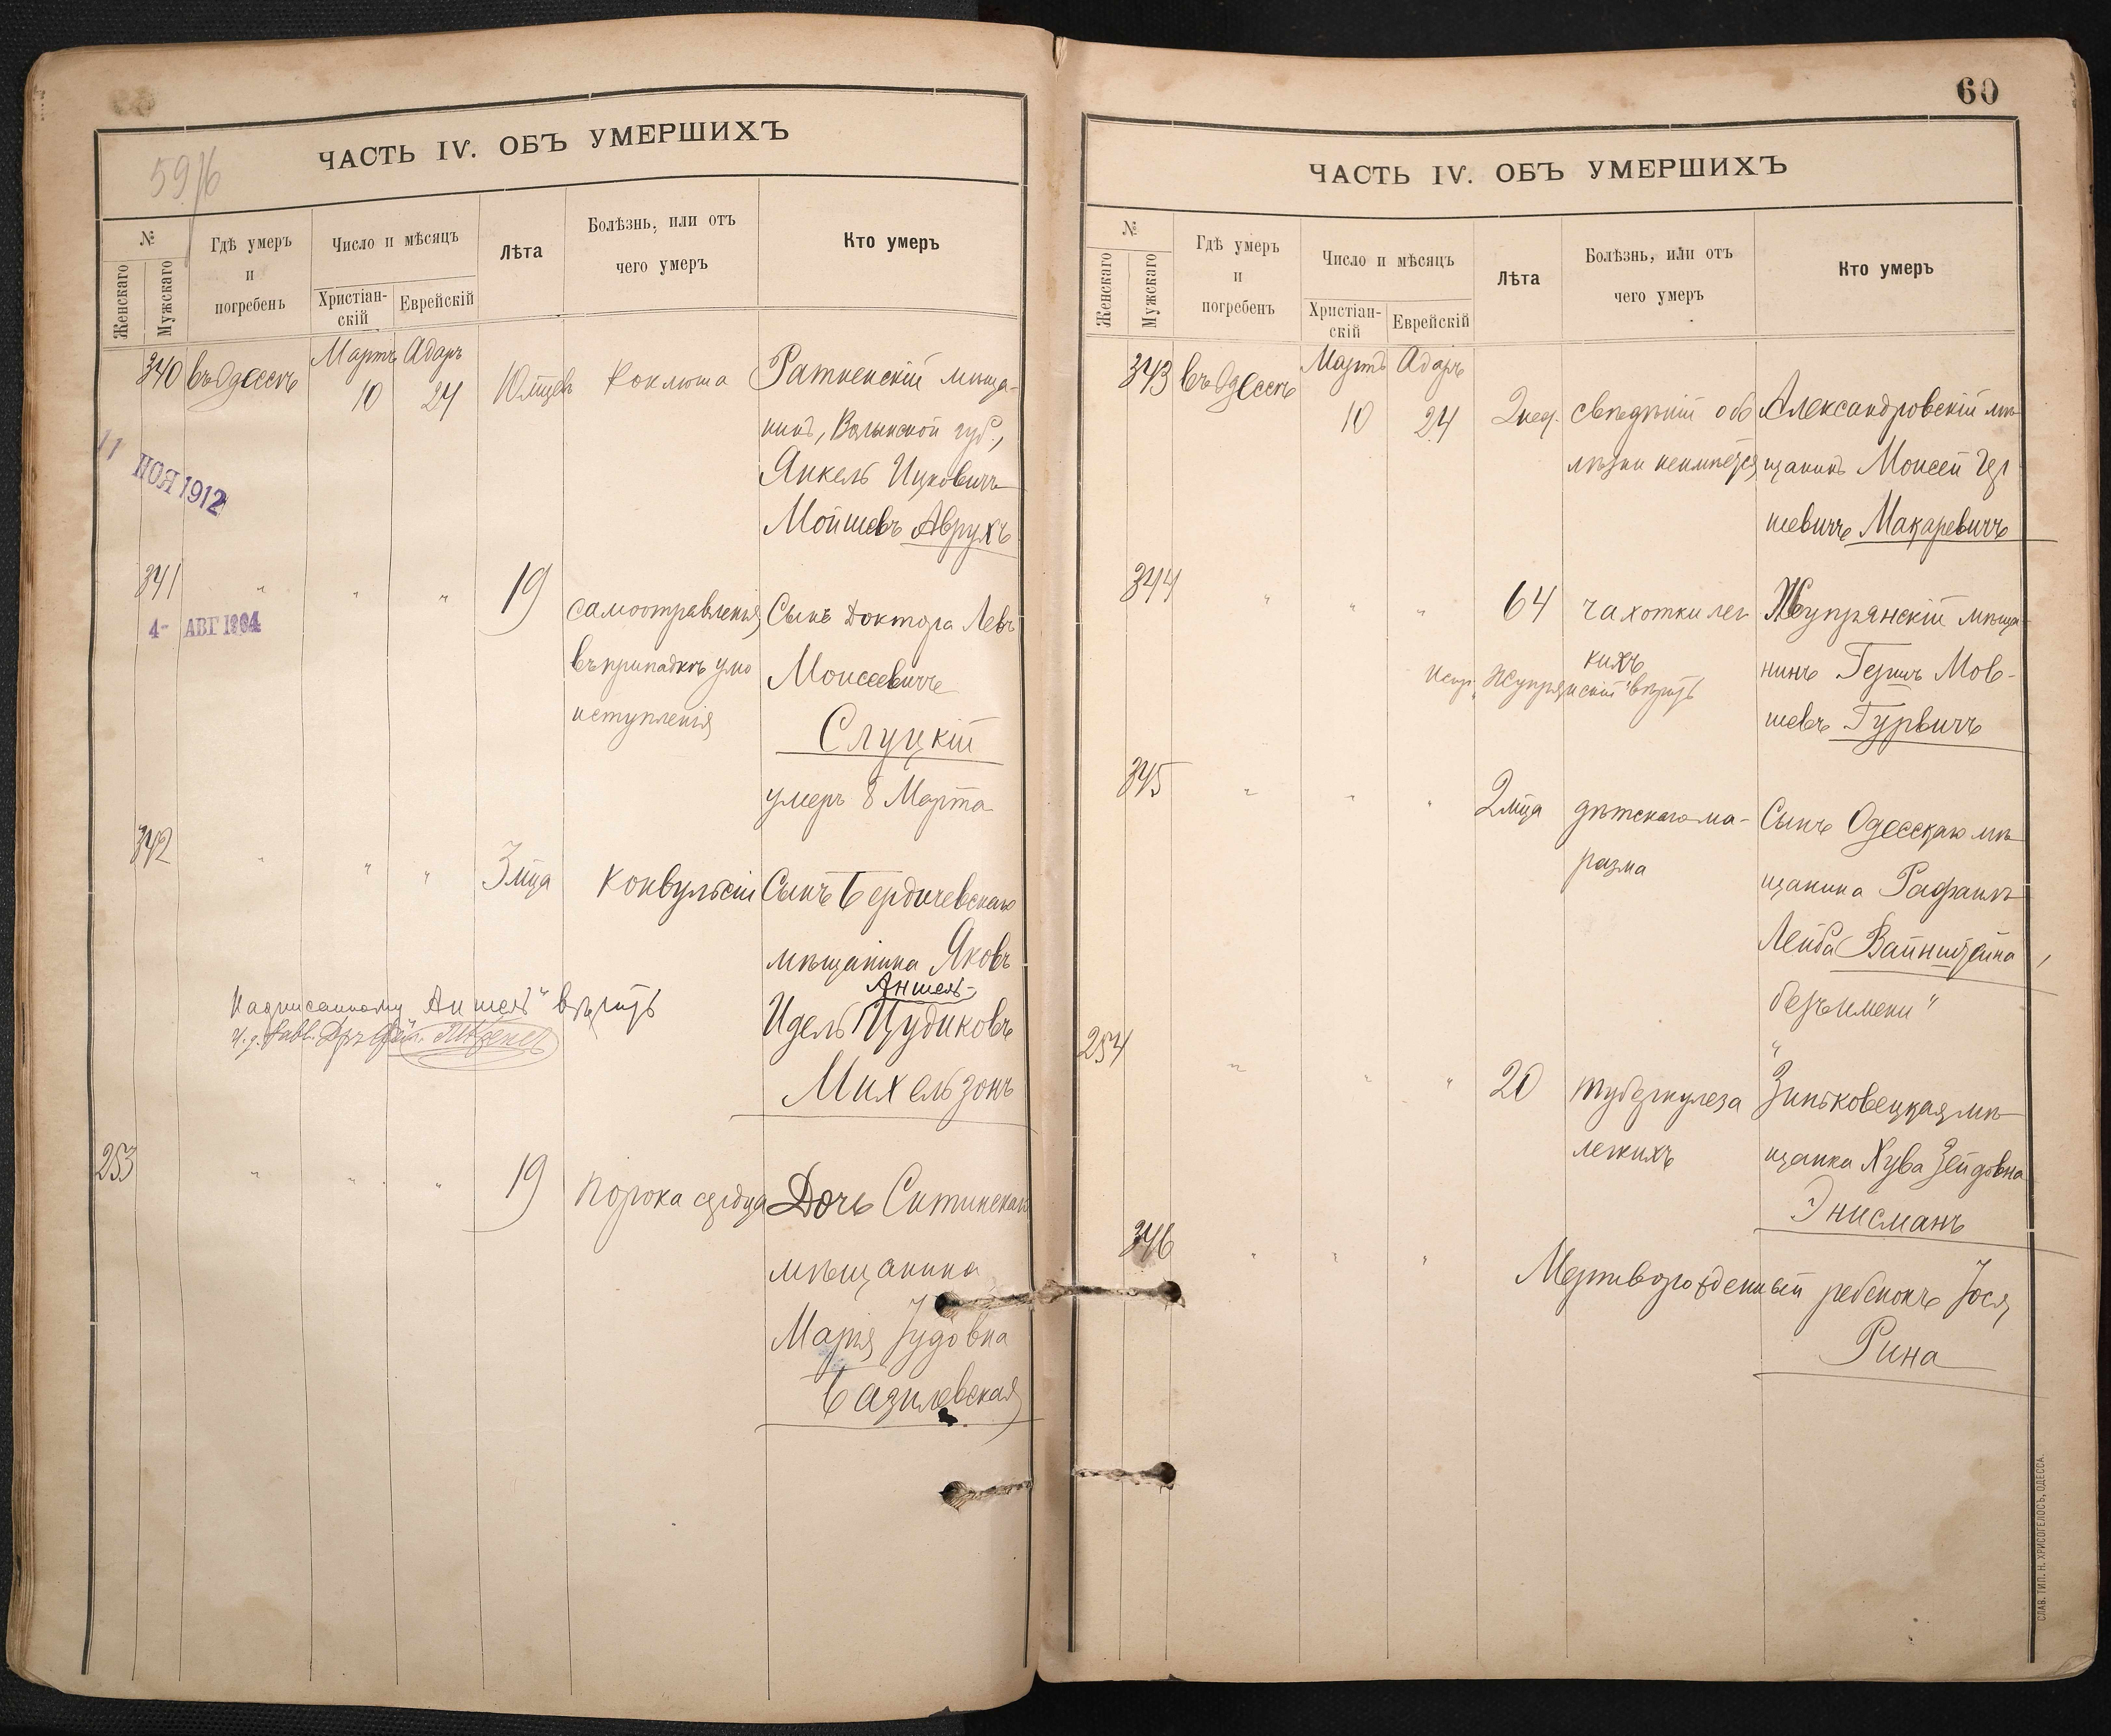 59 1/6
ЧАСТЬ IV. ОБЪ УМЕРШИХЪ
№
Женскаго
Мужскаго
Гдѣ умеръ
и
погребенъ
Число и мѣсяцъ
Христіан-
скій
Еврейскій
Лѣта
Болѣзнь, или отъ
чего умеръ
Кто умеръ
340 въ Одессѣ Мартъ 10 Адаръ 24 10 мцевъ Коклюша Ратненскій мѣща-
нинъ, Волынской губ.,
Янкель Ицковичъ
Мойшевъ Аврухъ
11 НОЯ 1912
341 " " " 19 самоотравленія Сынъ Доктора Левъ
4- АВГ 1904
въ припадкѣ умо Моисеевичъ
иступленія Слуцкій
умеръ 8 Марта
342 " " " 3 мца Конвульсіи Сынъ Бердичевскаго
мѣщанина Яковъ
Аншель
Надписанному "Аншель" вѣрить
Идель Цудиковъ
Михельзонъ
253 " " " 19 порока сердца Дочь Ситинскаго
мѣщанина
Марія Іудовна
Базилевская
60
ЧАСТЬ IV. ОБЪ УМЕРШИХЪ
№
Женскаго
Мужскаго
Гдѣ умеръ
и
погребенъ
Число и мѣсяцъ
Христіан-
скій
Еврейскій
Лѣта
Болѣзнь, или отъ
чего умеръ
Кто умеръ
343 въ Одессѣ Мартъ 10 Адаръ 24 2 нед. свѣдѣній о бо Александровскій мѣ
лѣзни неимѣется щанинъ Моисей Гер
шевичъ Макаревичъ
344 " " " 64 чахотки лег Жупрянскій мѣща-
кихъ нинъ Гершъ Мов-
Испр. "Жупрянскій" вѣрить
шевъ Гурвичъ
345 " " " 2 мца дѣтскаго ма- Сынъ Одесскаго мѣ
разма щанина Рафаилъ
Лейба Вайнштейна,
безъ имени"
254 " " " 20 туберкулеза Зиньковецкая мѣ
легкихъ щанка Хува Зейдовна
Энисманъ
346 " " " Мертворожденный ребенокъ Іося
Рина
СЛАВ. ТИП. Н. ХРИСОГЕЛОСЪ, ОДЕССА.